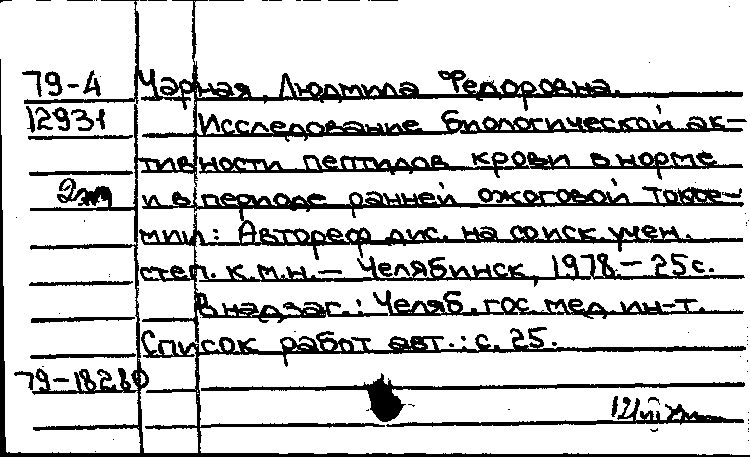 79-4 Чарная, Людмила Федоровна.
12931 Исследование биологической ак-
тивности пептидов крови в норме
2 и в периоде ранней ожоговой токсе-
мии: Автореф. дис. на соиск. учен.
степ. к.м.н. — Челябинск, 1978. — 25с.
В надзаг.: Челяб. гос. мед. ин-т.
Список работ авт.: с. 25.
79-18280